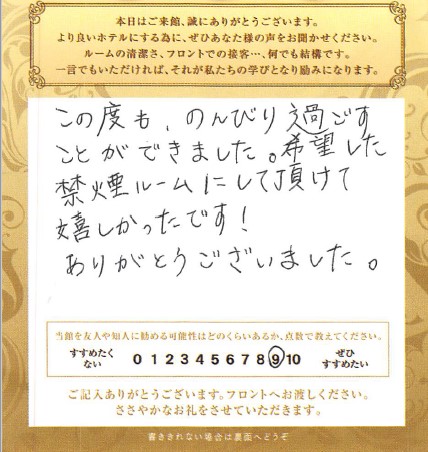 本日はご来館、誠にありがとうございます。
より良いホテルにする為に、ぜひあなた様の声をお聞かせください。
ルームの清潔さ、フロントでの接客…、何でも結構です。
一言でもいただければ、それが私たちの学びとなり励みになります。
この度も、のんびり過ごす
ことができました。希望した
禁煙ルームにして頂けて
嬉しかったです!
ありがとうございました。
当館を友人や知人に勧める可能性はどのくらいあるか、点数で教えてください。
すすめたくない 0 1 2 3 4 5 6 7 8 9 10 ぜひすすめたい
ご記入ありがとうございます。フロントへお渡しください。
ささやかなお礼をさせていただきます。
書ききれない場合は裏面へどうぞ